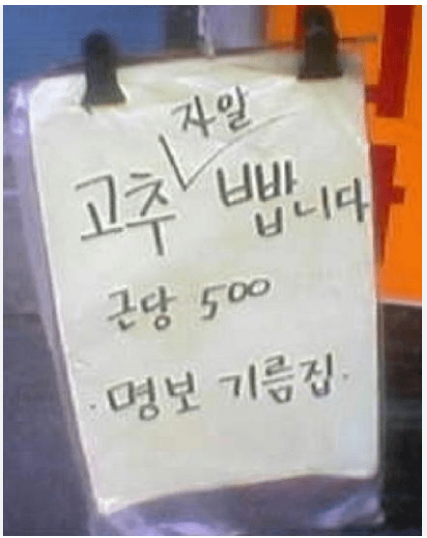 자일
고추 빱니다
근당 500
· 명보 기름집 ·